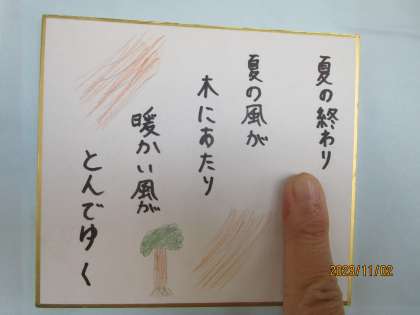 夏の終わり
夏の風が
木にあたり
暖かい風が
とんでゆく
2023/11/02